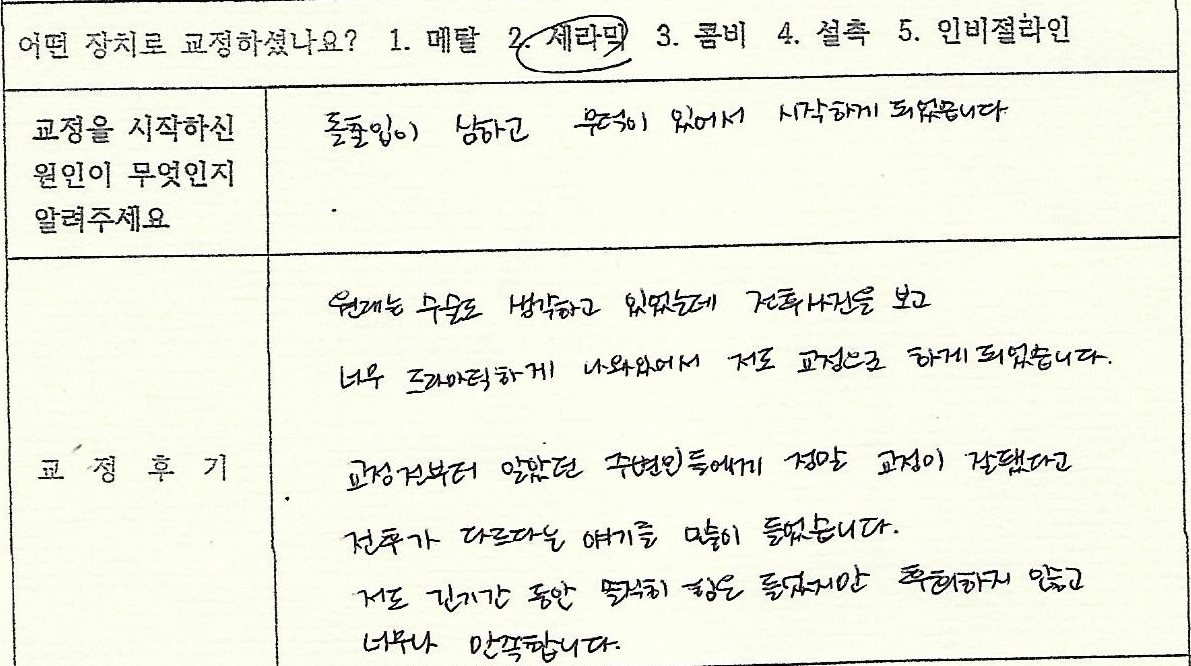 어떤 장치로 교정하셨나요? 1. 메탈 2. 세라믹 3. 콤비 4. 설측 5. 인비절라인
교정을 시작하신
원인이 무엇인지
알려주세요
돌출입이 심하고 무턱이 있어서 시작하게 되었습니다
교 정 후 기
원래는 수술도 생각하고 있었는데 전후사진을 보고
너무 드라마틱하게 나와있어서 저도 교정으로 하게 되었습니다.
교정전부터 알았던 주변인들에게 정말 교정이 잘됐다고
전후가 다르다는 얘기를 많이 들었습니다.
저도 긴기간 동안 솔직히 힘은 들었지만 후회하지 않고
너무나 만족합니다.